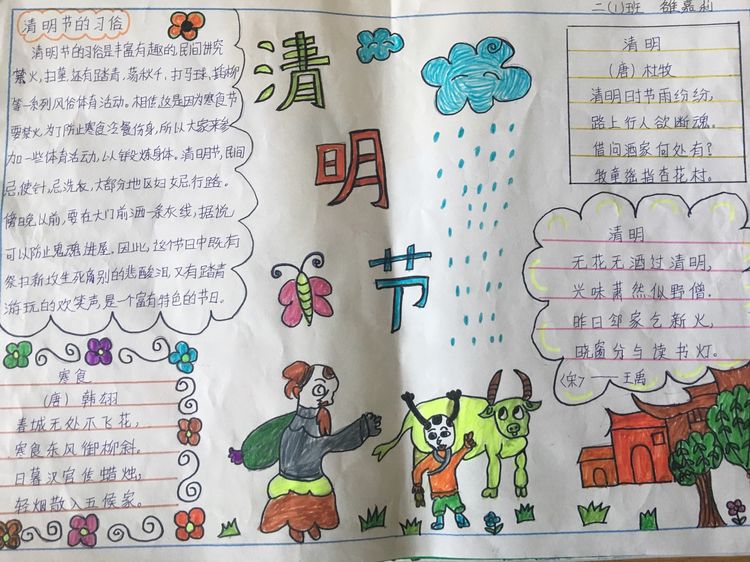 二(1)班
清明节的习俗
清明节的习俗是丰富有趣的,民间讲究
禁火,扫墓,还有踏青、荡秋千、打马球、插柳
等一系列风俗体育活动。相传这是因为寒食节
要禁火,为了防止寒食冷餐伤身,所以大家来参
加一些体育活动,以锻炼身体。清明节,民间
忌使针,忌洗衣,大部分地区妇女忌行路。
傍晚以前,要在大门前洒一条灰线,据说
可以防止鬼魂进屋。因此,这个节日中既有
祭扫新坟生死离别的悲酸泪,又有踏青
游玩的欢笑声,是一个富有特色的节日。
清
明
节
清明
(唐)杜牧
清明时节雨纷纷,
路上行人欲断魂。
借问酒家何处有?
牧童遥指杏花村。
清明
无花无酒过清明,
兴味萧然似野僧.
昨日邻家乞新火,
晓窗分与读书灯。
〈宋〉——王禹
寒食
(唐)韩翃
春城无处不飞花,
寒食东风御柳斜。
日暮汉宫传蜡烛,
轻烟散入五侯家。